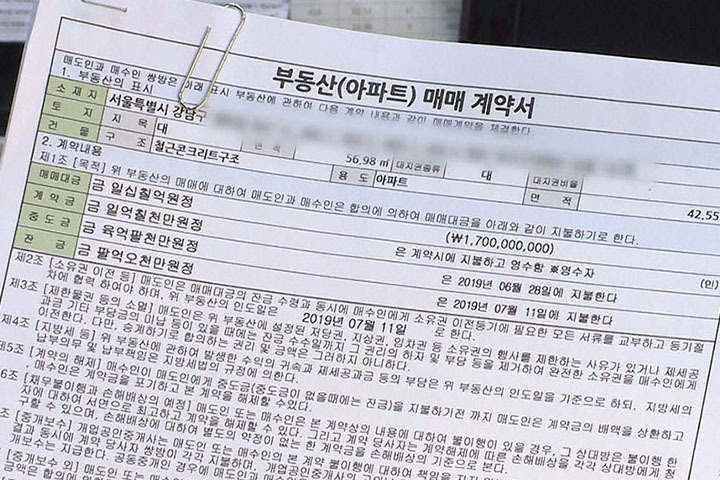 부동산(아파트) 매매 계약서
매도인과 매수인 쌍방은 아래 표시 부동산에 관하여 다음 계약 내용과 같이 매매계약을 체결한다.
1. 부동산의 표시
소 재 지 서울특별시 강남구
토 지 지 목 대 56,98 ㎡ 대지권종류 대 대지권비율
건 물 구 조 철근콘크리트구조 용 도 아파트 면 적 42.55
2. 계약내용
제1조 [목적] 위 부동산의 매매에 대하여 매도인과 매수인은 합의에 의하여 매매대금을 아래와 같이 지불하기로 한다.
매매대금 금 일십칠억원정 (₩1,700,000,000)
계 약 금 금 일억칠천만원정 은 계약시에 지불하고 영수함 ※영수자 (인)
중 도 금 금 육억팔천만원정 은 2019년 06월 28일에 지불한다
잔 금 금 팔억오천만원정 은 2019년 07월 11일에 지불한다
제2조 [소유권 이전 등] 매도인은 매매대금의 잔금 수령과 동시에 매수인에게 소유권 이전등기에 필요한 모든 서류를 교부하고 등기절
차에 협력 하여야 하며, 위 부동산의 인도일은 2019년 07월 11일 로 한다.
제3조 [제한물권 등의 소멸] 매도인은 위 부동산에 설정된 저당권, 지상권, 임차권 등 소유권의 행사를 제한하는 사유가 있거나 제세공
과금 기타 부담금의 미납 등이 있을 때에는 잔금 수수일까지 그 권리의 하자 및 부담 등을 제거하여 완전한 소유권을 매수인에게
이전한다. 다만, 승계하기로 합의하는 권리 및 금액은 그러하지 아니하다.
제4조 [지방세 등] 위 부동산에 관하여 발생한 수익의 귀속과 제세공과금 등의 부담은 위 부동산의 인도일을 기준으로 하되, 지방세의
납부의무 및 납부책임은 지방세법의 규정에 의한다.
제5조 [계약의 해제] 매수인이 매도인에게 중도금(중도금이 없을때에는 잔금)을 지불하기전 까지 매도인은 계약금의 배액을 상환하고
, 매수인은 계약금을 포기하고 본 계약을 해제할 수 있다.
6조 [채무불이행과 손해배상의 예정] 매도인 또는 매수인은 본 계약상의 내용에 대하여 불이행이 있을 경우, 그 상대방은 불이행 한
자에 대하여 서면으로 최고하고 계약을 해제할 수 있다. 그리고 계약 당사자는 계약해제에 따른 손해배상을 각각 상대방에게 청
구할 수 있으며, 손해배상에 대하여 별도의 약정이 없는 한 계약금을 손해배상의 기준으로 본다.
조 [중개보수] 개업공인중개사는 매도인 또는 매수인의 본 계약 불이행에 대하여 책임을 지지
결과 동시에 계약 당사자 쌍방이 각각 지불하며,
개보수는 지급한다. 공동중개인 경우에 매도인과 매수인은
[중개보수 외] 매도인 또는 매수인이
금액은 합의에